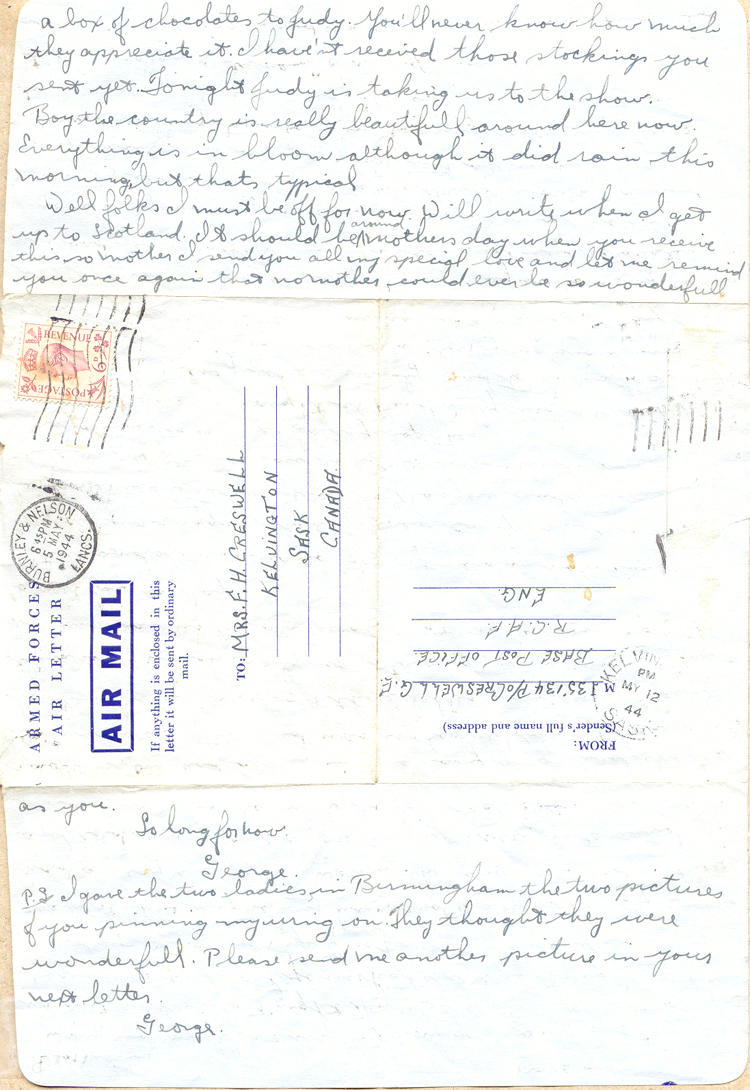 a box of chocolates to Judy. You'll never know how much
they appreciate it. I hav'nt received those stockings you
sent yet. Tonight Judy is taking us to the show.
Boy the country is really beautifull around here now.
Everything is in bloom although it did rain this
morning, but thats typical
Well folks I must be off for now. Will write when I get
up to Scotland. It should be around mothers day when you receive
this so mother I send you all my special love and let me remind
you once again that no mother could ever be so wonderfull
REVENUE
POSTAGE
BURNLEY & NELSON
6 45 PM
5 MAY
1944
LANCS.
ARMED FORCES
AIR LETTER
AIR MAIL
If anything is enclosed in this
letter it will be sent by ordinary
mail.
TO: MRS. F. H. CRESWELL
KELVINGTON
SASK
CANADA.
FROM:
(Sender's full name and address)
CRESWELL G.E.
BASE POST OFFICE
R.C.A.F.
ENG.
KELVIN
PM
MY 12
44
SASK
as you.
So long for now.
George.
P.S I gave the two ladies in Birmingham the two pictures
of you pinning my wing on. They thought they were
wonderfull. Please send me another picture in your
next letter.
George.